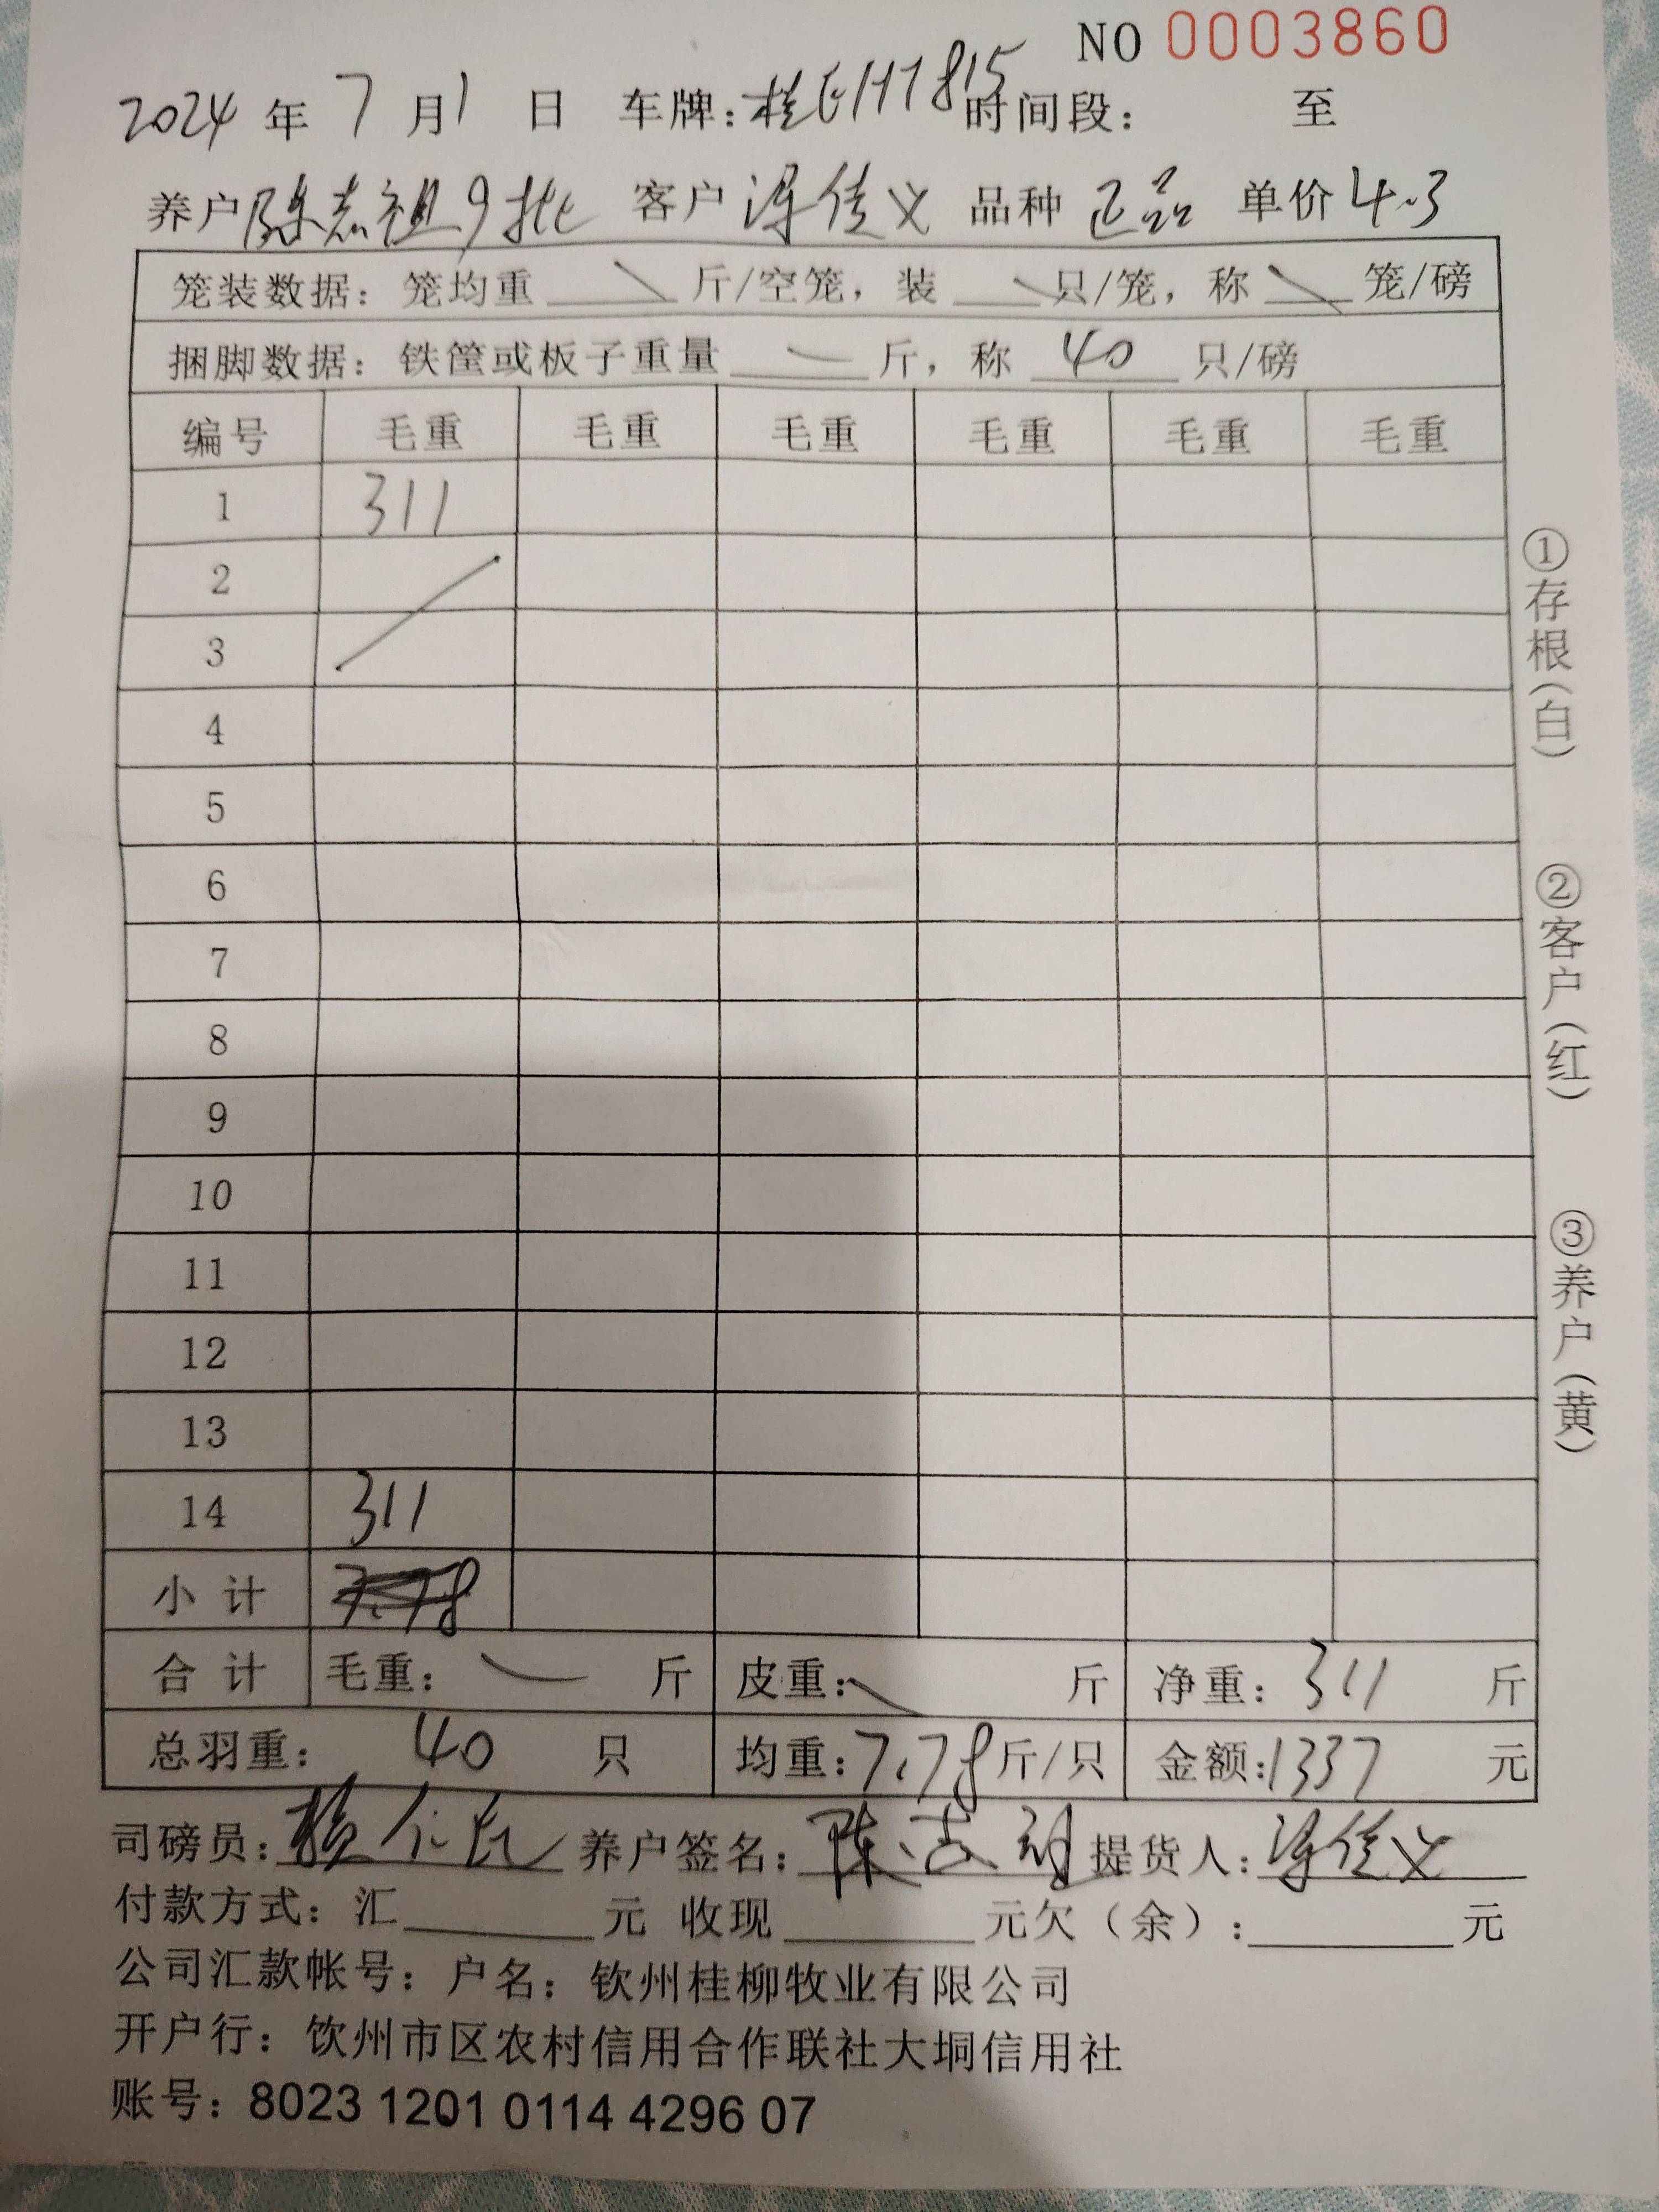 NO 0003860
2024 年 7 月 1 日 车牌:桂 时间段: 至
养户 陈志祖 9批 客户 佳义 品种 正品 单价 4.3
笼装数据:笼均重 斤/空笼,装 只/笼,称 笼/磅
捆脚数据:铁筐或板子重量 斤,称 40 只/磅
编号 毛重 毛重 毛重 毛重 毛重 毛重
1 311
2
3
4
5
6
7
8
9
10
11
12
13
14 311
小 计 7.78
合 计 毛重: 斤 皮重: 斤 净重: 311 斤
总羽重: 40 只 均重:7.78斤/只 金额:1337 元
司磅员: 养户签名: 陈志祖 提货人: 佳义
付款方式:汇 元 收现 元欠(余): 元
公司汇款帐号:户名:钦州桂柳牧业有限公司
开户行:饮州市区农村信用合作联社大垌信用社
账号:8023 1201 0114 4296 07
①存根(白)
②客户(红)
③养户(黄)